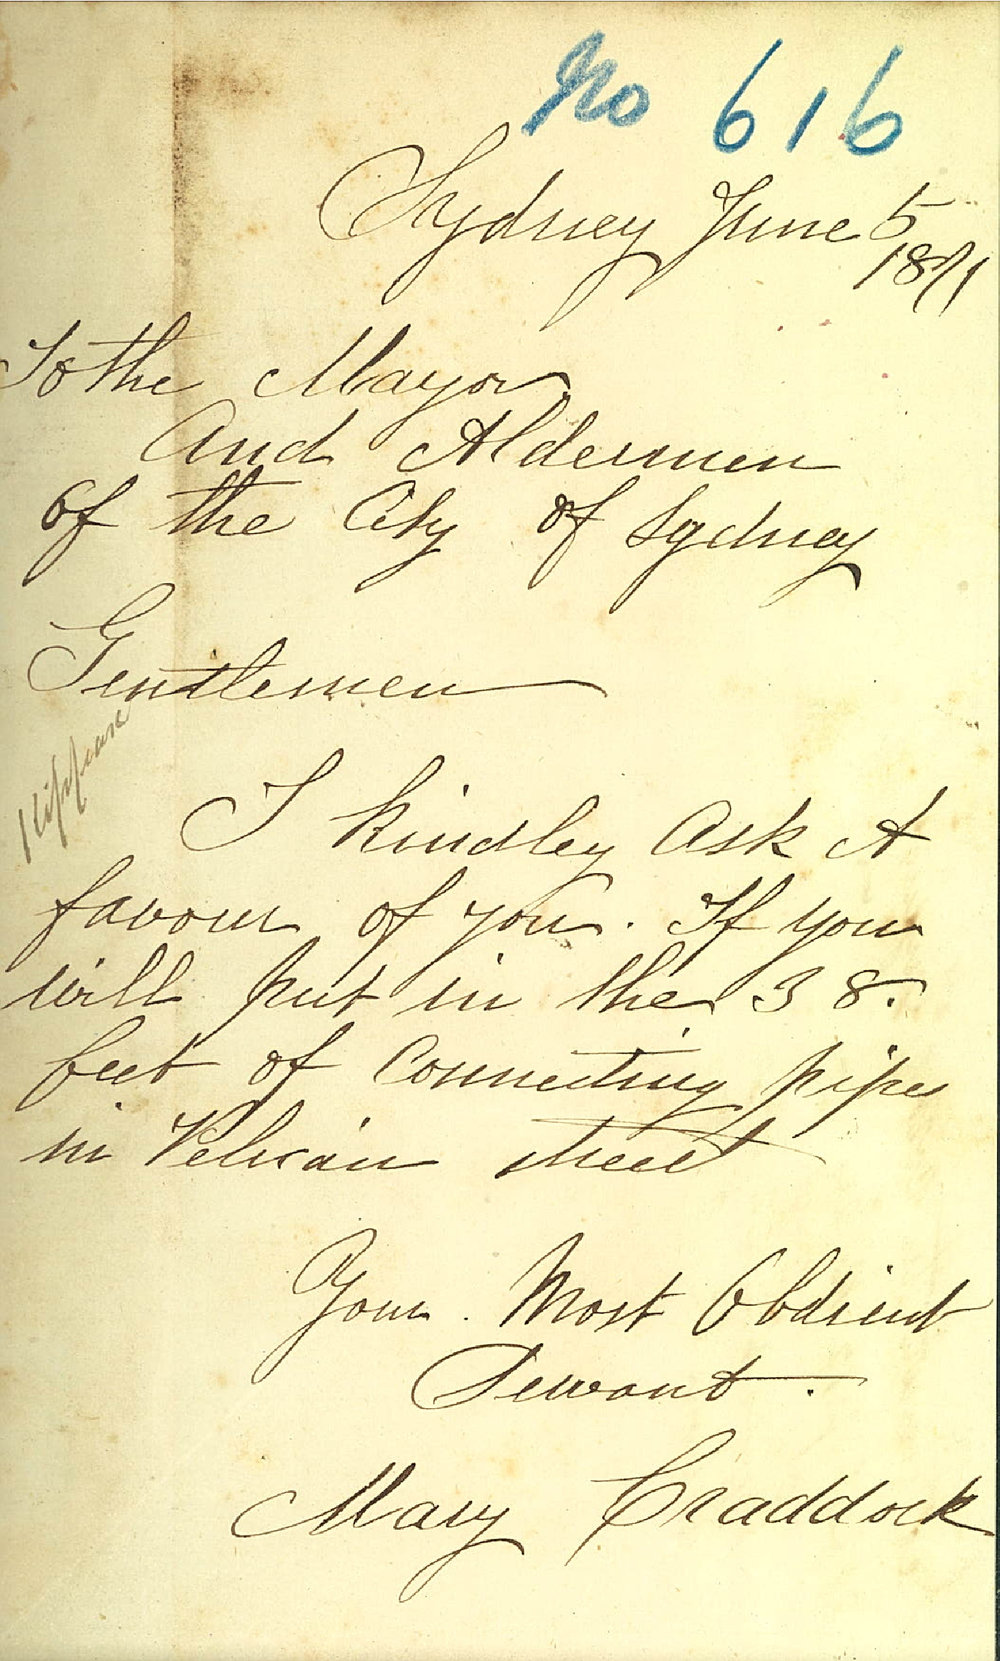 No 616
Sydney June 5
1871
To the Mayor
And Aldermen
of the City of Sydney
Gentlemen
I kindley Ask A
favour of you. If you
will put in the 38.
feet of Connecting pipes
in Pelican street
Your. Most Obdient
Servant.
Mary Craddock